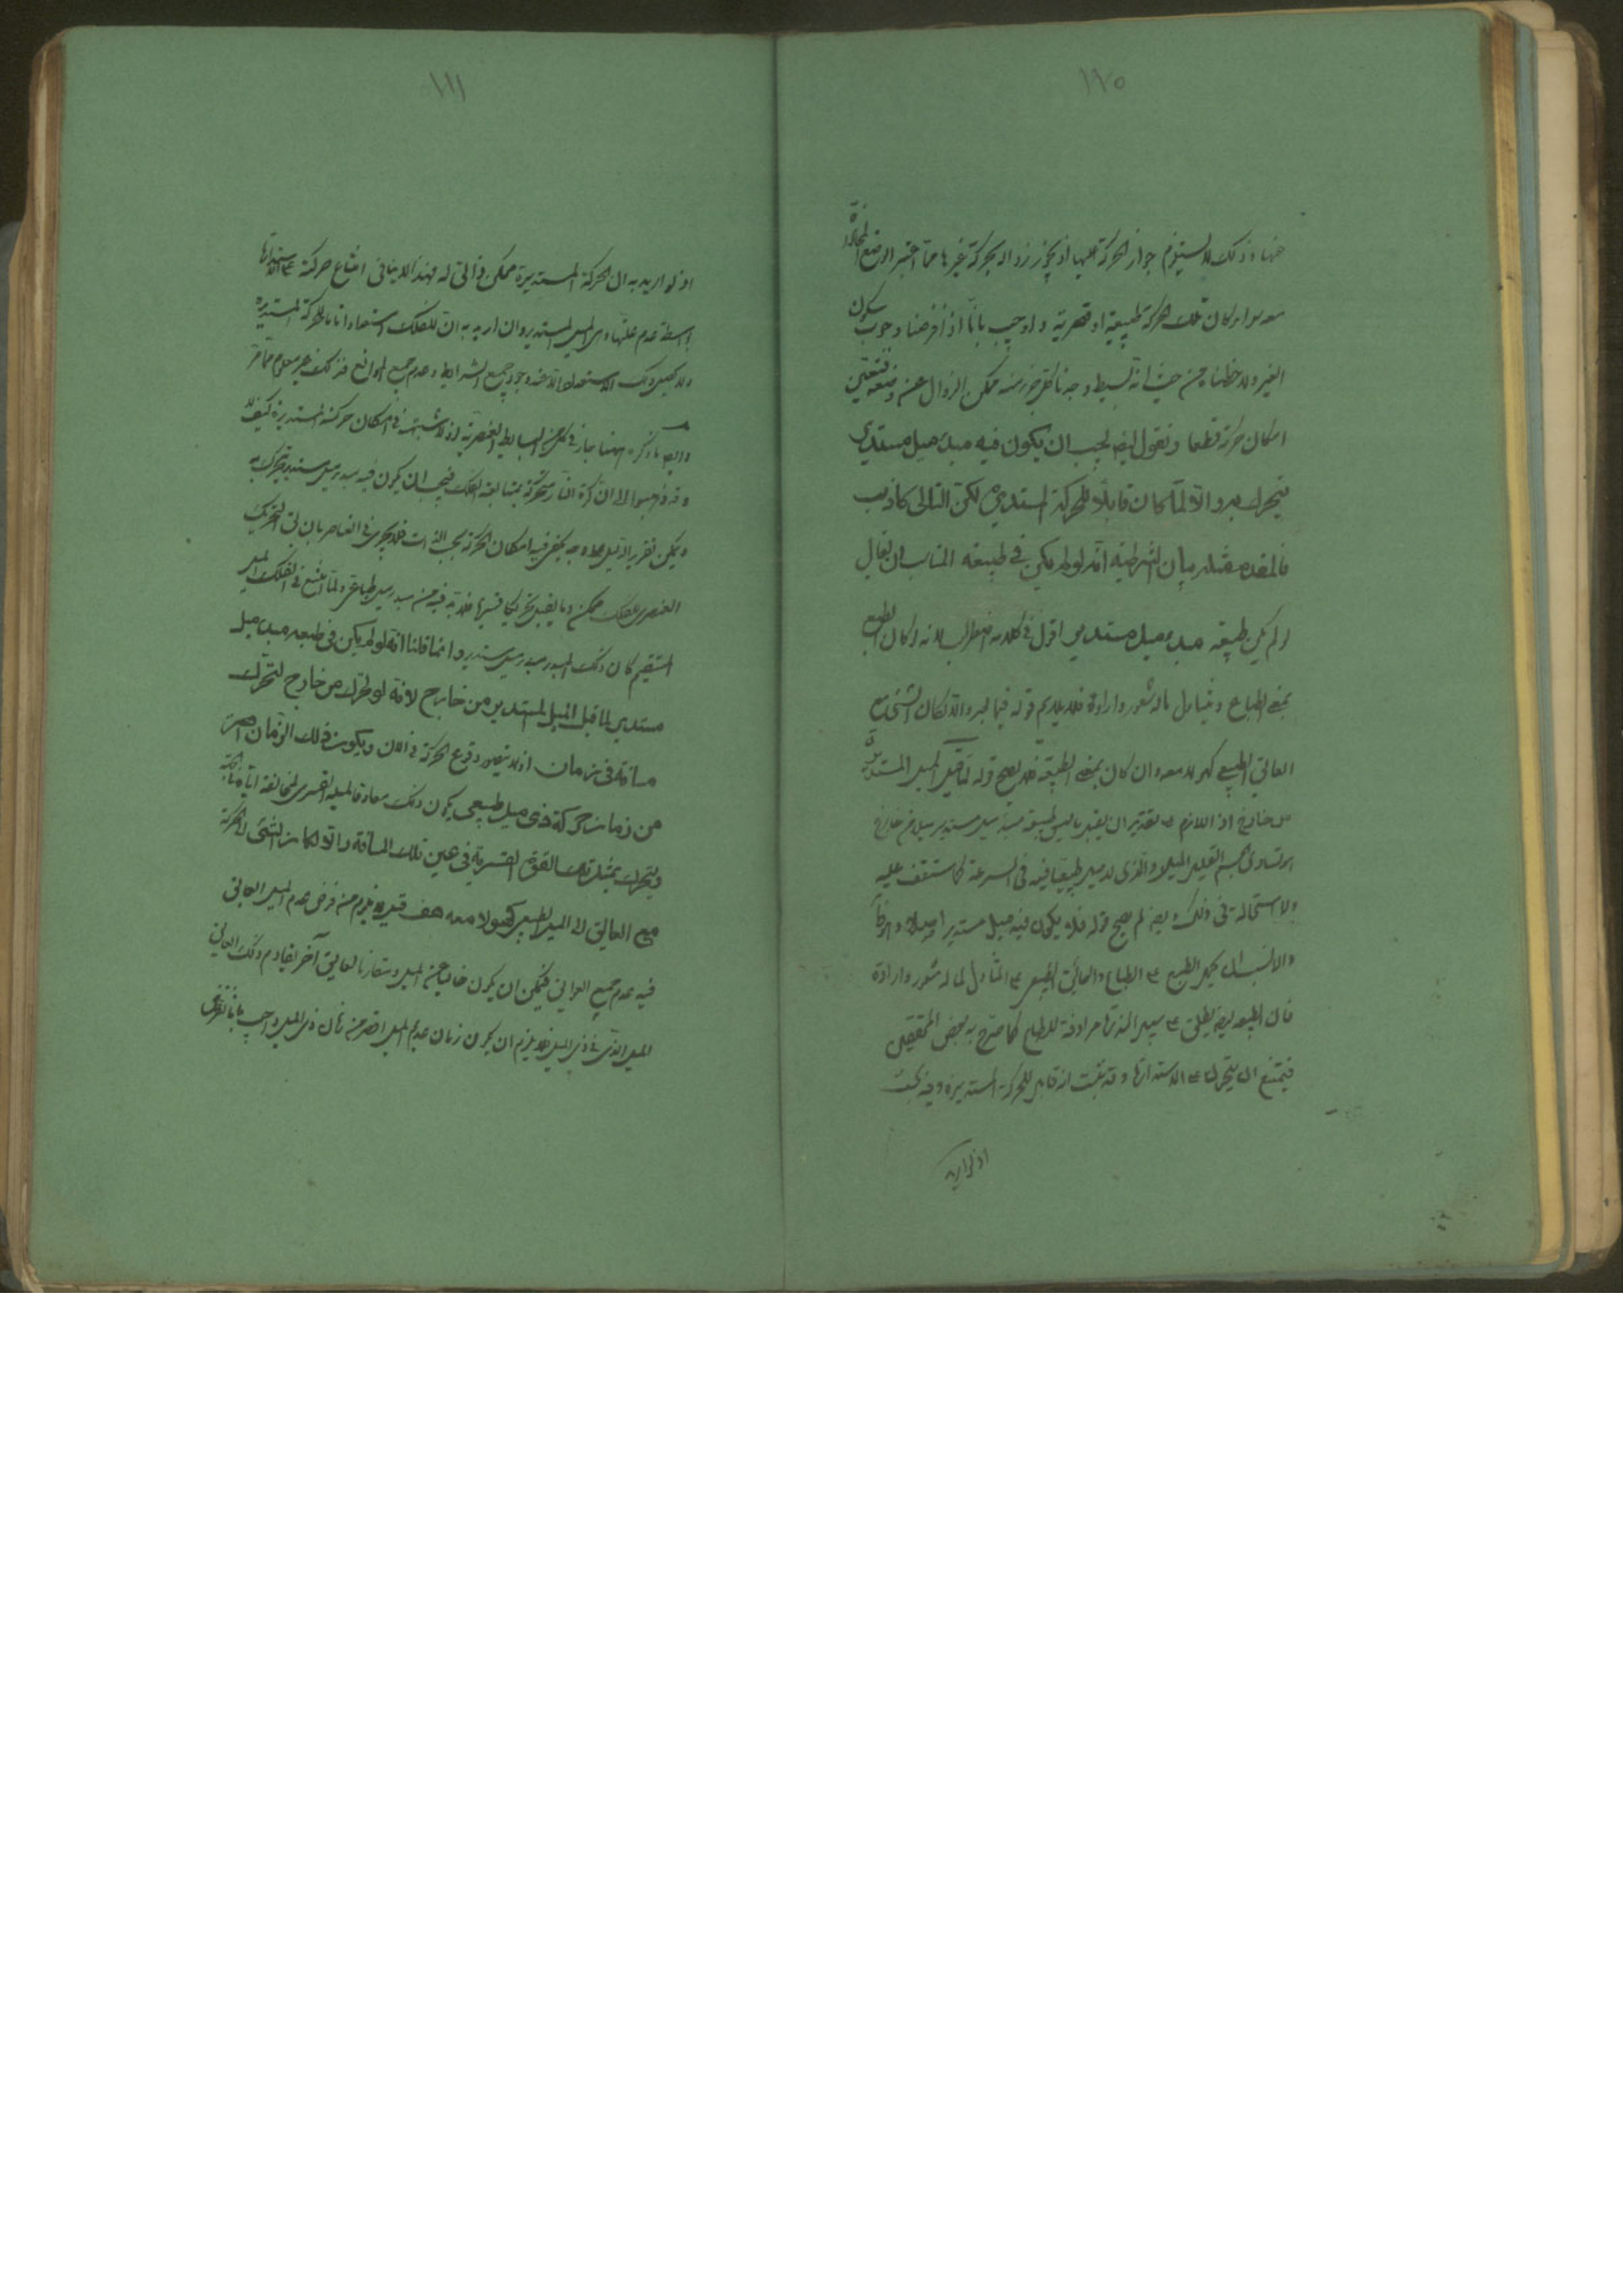 ١٢٥
عنها وذلك لا يستلزم جواز الحركة عليها اذ يجوز زواله بحركة غيرها مما اعتبر الوضع
سواء كان تلك الحركة طبيعية او قسرية واجيب بانا اذا فرضنا وجوب سكون
الغير ولاحظناه من حيث انه بسيط وجدنا كل جزء منه ممكن الزوال عن وضعه فتعين
امكان حركته قطعا ونقول ايضا يجب ان يكون فيه مبدء ميل مستدير
يتحرك به والا لما كان قابلا للحركة المستديرة لكن التالى كاذب
فالمقدم مثله بيان الشرطية انه لو لم يكن فى طبيعته المناسب ان يقال
لو لم يكن طبيعته مبدء ميل مستدير اقول فى كلامه اضطراب لانه لو كان الطبع
بمعنى الطباع ويتناول ماله شعور وارادة فلا يلايم قوله فيما بعد والا لكان الشئ مع
العائق الطبيعى كهو لا معه وان كان بمعنى الطبيعة فلا يصح قوله لما قبل الميل المستدير
من خارج اذ اللازم على تقدير ان
ان تساوى الجسم القليل الميل والذى لا ميل طبيعيا فيه فى السرعة كما ستقف عليه
ولا استحالة فى ذلك وايضا لم يصح قوله فلا يكون فيه ميل مستدير اصلا
والانسب ان يحمل الطبع على الطباع والعائق الطبيعى على المتناول لما له شعور وارادة
فان الطبيعة ايضا يطلق على سبيل الندرة مرادفة للطباع كما صرح به بعض المحققين
فيمتنع ان يتحرك على الاستدارة وقد ثبت انه قابل للحركة المستديرة وفيه بحث
اذ لو اريد
اذ لو اريد به ان الحركة المستديرة ممكن ذاتى له فهذا لا ينافى امتناع حركته على الاستدارة
بواسطة عدم علتها اى الميل المستدير وان اريد به ان للفلك استعدادا تاما للحركة المستديرة
ولا يحصل ذلك الاستعداد الا عند وجود جميع الشرايط وعدم جميع الموانع فذلك غير معلوم مما مر
وايضا ما ذكره ههنا جار فى كل من البسايط العنصرية اذ لا شبهة فى امكان حركته المستديرة كيف لا
وقد ذهبوا الى ان كرة النار متحركة بمتابعة الفلك فيجب ان يكون فيه مبدء ميل مستدير يتحرك به
ويمكن تقرير الدليل على وجه يكفى فيه امكان الحركة بحسب الذات فلا يجرى فى العناصر بان
الغير العنصرى للفلك ممكن وما يقبل تحريكا قسريا فلا بد فيه من مبدء ميل طباعى ولما امتنع فى الفلك الميل
المستقيم كان ذلك المبدء مبدء ميل مستدير وانما قلنا انه لو لم يكن فى طبعه مبدء ميل
مستدير لما قبل الميل المستدير من خارج لانه لو تحرك من خارج لتحرك
مسافة فى زمان اذ لا يتصور وقوع الحركة فى الان ويكون ذلك الزمان اقصر
من زمان حركة ذى ميل طبيعى يكون ذلك معاوقا لميله القسرى لمخالفته اياه
ويتحرك بمثل تلك القوة القسرية فى عين تلك المسافة والا لكان الشئ للحركة
مع العائق اى الميل الطبيعى كهو لا معه هف قيل لا يلزم من فرض عدم الميل العائق
فيه عدم جميع العوائق فيمكن ان يكون خاليا عن الميل ومقارنا لعائق آخر يقاوم ذلك العائق
الميل الذى فى ذى الميل فلا يلزم ان يكون زمان عديم الميل اقصر من زمان ذى الميل واجيب بانا نفرض